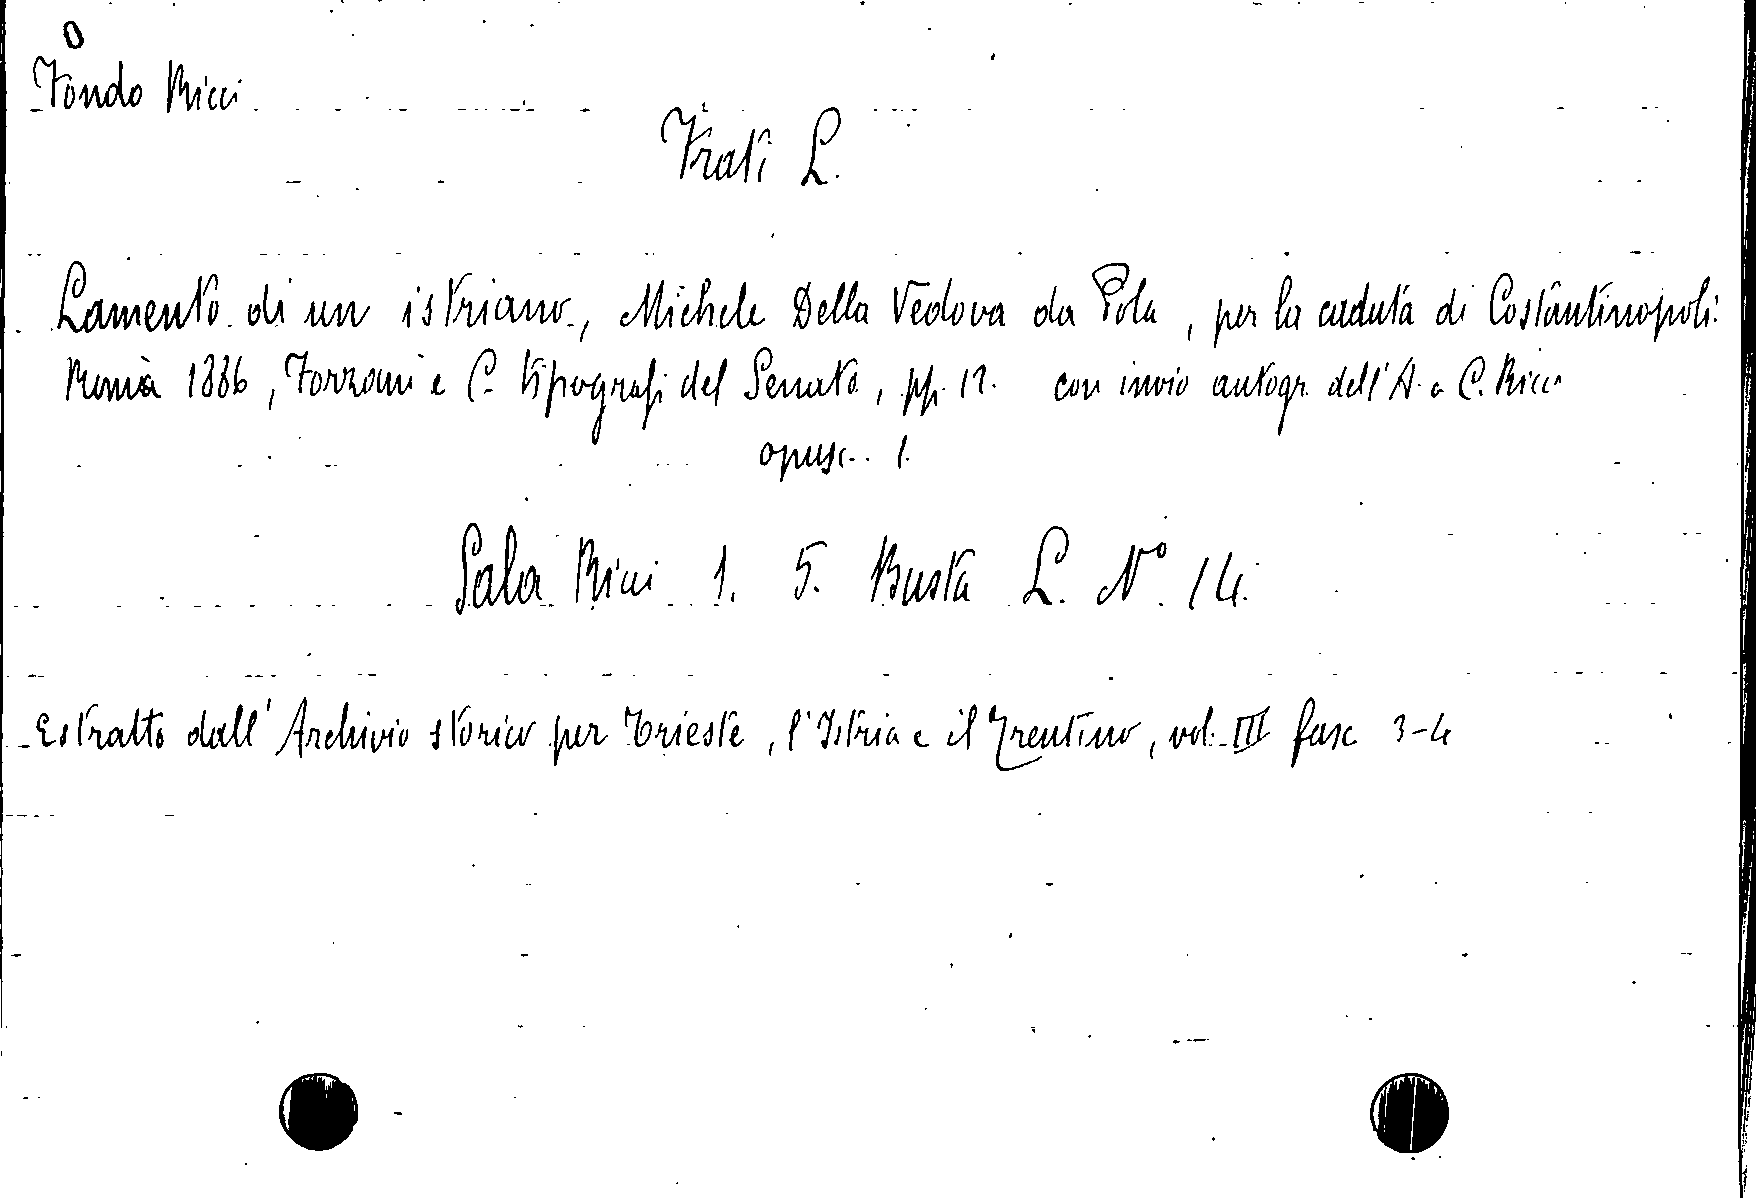 0
Fondo Ricci
Frati L.
Lamento di un istriano, Michele Della Vedova da Pola, per la caduta di Costantinopoli.
Roma 1886, Forzani e C. tipografi del Senato, pp. 12. con invio autogr. dell'A. a C. Ricci
opusc. 1.
Sala Ricci 1. 5. Busta L. N° 14.
Estratto dall'Archivio storico per Trieste, l'Istria e il Trentino, vol. III fasc 3-4